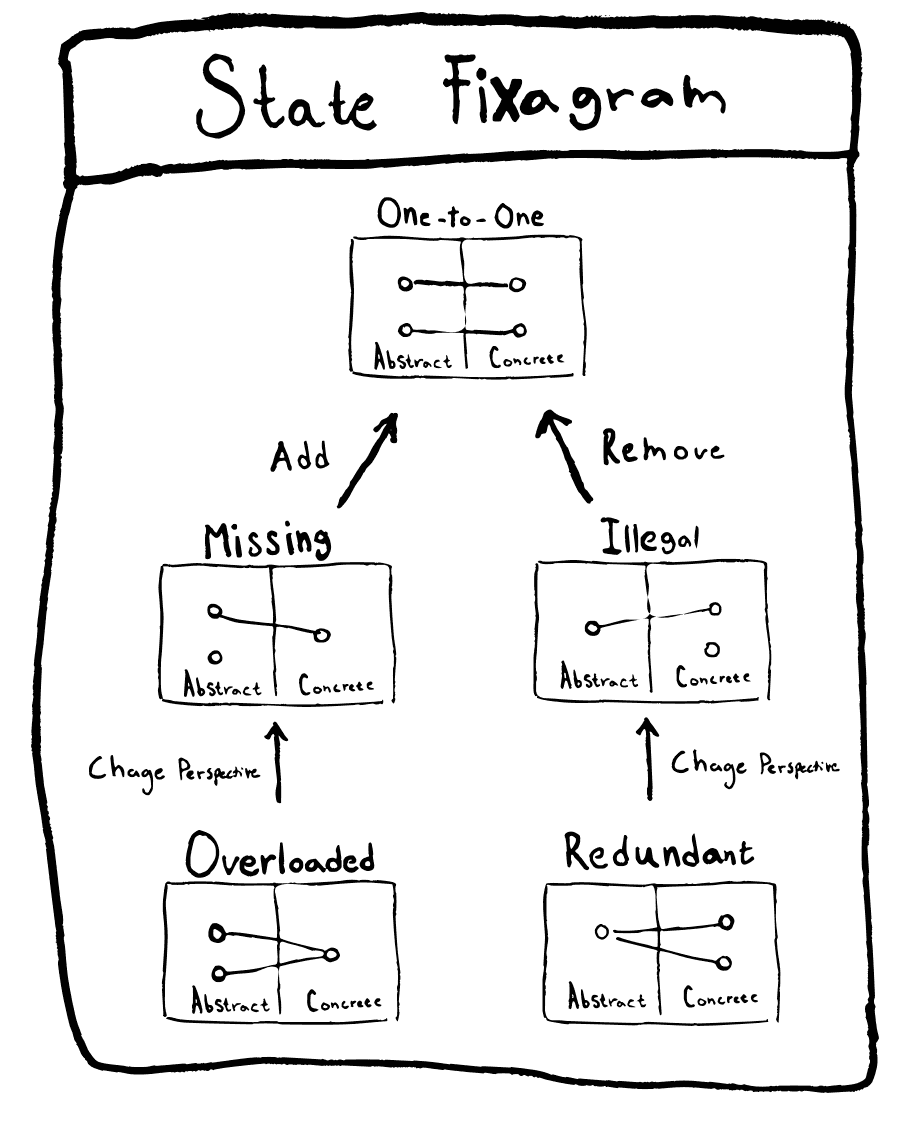 State Fixagram
One-to-One
Abstract Concrete
Add Remove
Missing Illegal
Abstract Concrete Abstract Concrete
Chage Perspective Chage Perspective
Overloaded Redundant
Abstract Concrete Abstract Concrete